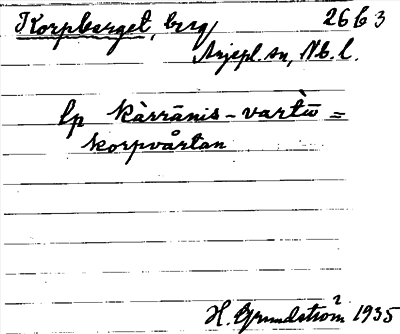 Korpberget, berg 26 b 3
Arjepl. sn, Nb. l.
lp kàrrānis-vartū =
korpvårtan
H. Grundström 1935